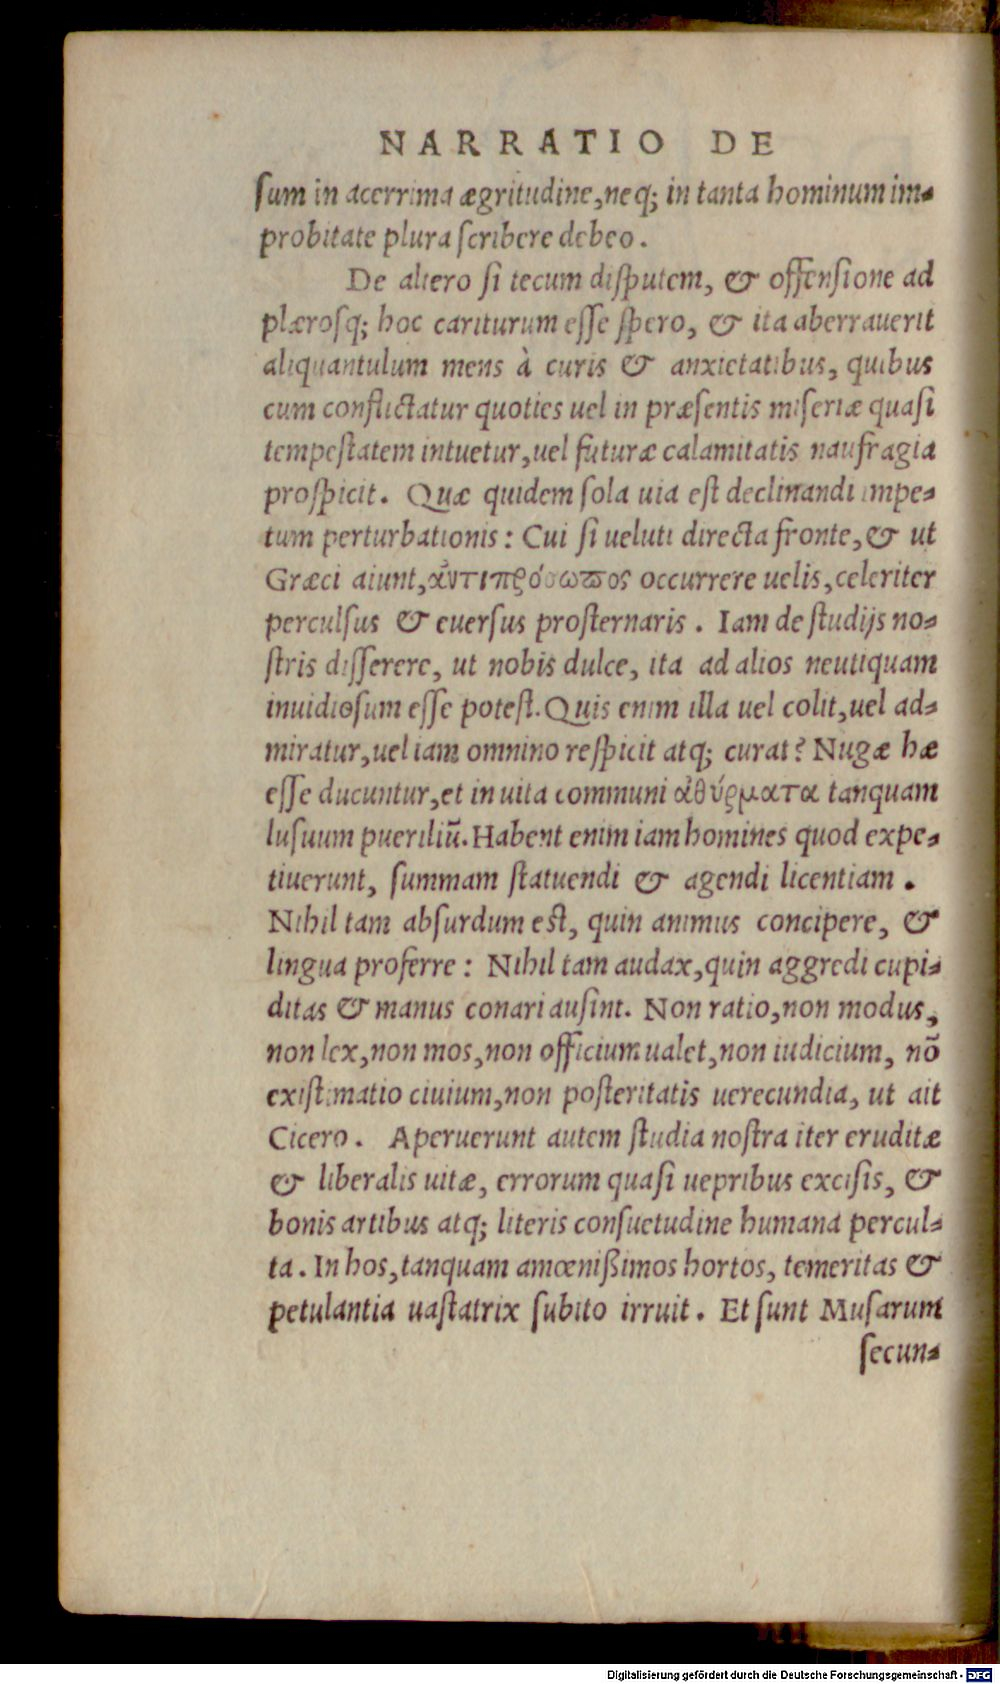 NARRATIO DE
sum in acerrima ægritudine, neq; in tanta hominum im-
probitate plura scribere debeo.
De altero si tecum disputem, & offensione ad
plærosq; hoc cariturum esse spero, & ita aberrauerit
aliquantulum mens à curis & anxietatibus, quibus
cum conflictatur quoties uel in præsentis miseriæ quasi
tempestatem intuetur, uel futuræ calamitatis naufragia
prospicit. Quæ quidem sola uia est declinandi impe-
tum perturbationis: Cui si ueluti directa fronte, & ut
Græci aiunt, ἀντιπρόσωπος occurrere uelis, celeriter
perculsus & euersus prosternaris. Iam de studijs no-
stris disserere, ut nobis dulce, ita ad alios neutiquam
inuidiosum esse potest. Quis enim illa uel colit, uel ad-
miratur, uel iam omnino respicit atq; curat? Nugæ hæ
esse ducuntur, et in uita communi ἀθύρματα tanquam
lusuum pueriliū. Habent enim iam homines quod expe-
tiuerunt, summam statuendi & agendi licentiam.
Nihil tam absurdum est, quin animus concipere, &
lingua proferre: Nihil tam audax, quin aggredi cupi-
ditas & manus conari ausint. Non ratio, non modus,
non lex, non mos, non officium ualet, non iudicium, nō
existimatio ciuium, non posteritatis uerecundia, ut ait
Cicero. Aperuerunt autem studia nostra iter eruditæ
& liberalis uitæ, errorum quasi uepribus excisis, &
bonis artibus atq; literis consuetudine humana percul-
ta. In hos, tanquam amœnißimos hortos, temeritas &
petulantia uastatrix subito irruit. Et sunt Musarum
secun-
Digitalisierung gefördert durch die Deutsche Forschungsgemeinschaft - DFG